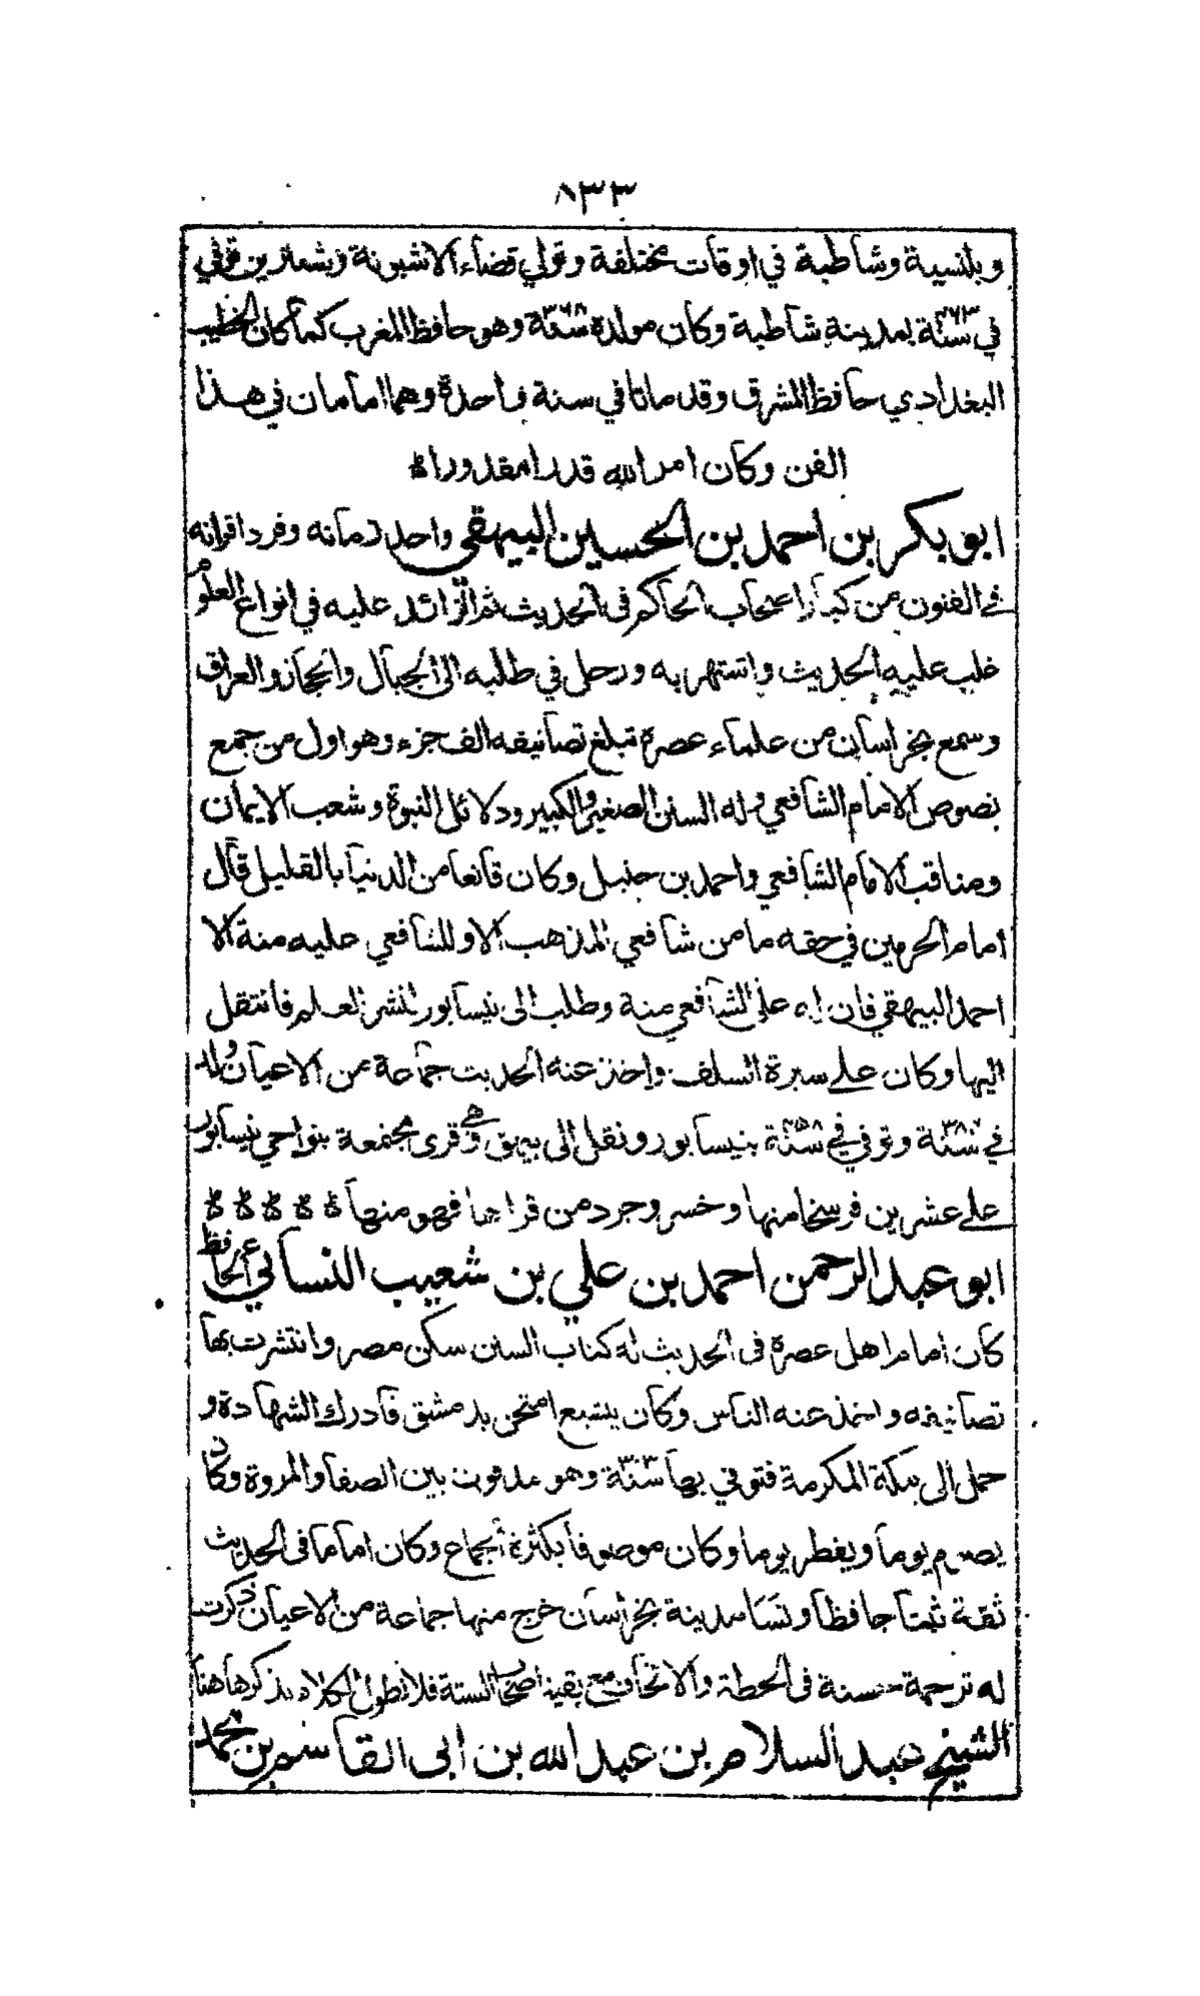 ٨٣٣
وبلنسية وشاطبة في اوقات مختلفة وتولي قضاء الاشبونة وشنترين توفي
في سنة ٤٦٣ بمدينة شاطبة وكان مولده سنة ٣٦٨ وهو حافظ المغرب كما كان الخطيب
البغدادي حافظ المشرق وقد ماتا في سنة واحدة وهما امامان في هذا
الفن وكان امر الله قدرا مقدورا
ابو بكر بن احمد بن الحسين البيهقي واحد زمانه وفرد اقرانه
في الفنون من كبار اصحاب الحاكم في الحديث ثم الزائد عليه في انواع العلوم
غلب عليه الحديث واشتهر به ورحل في طلبه الى الجبال والحجاز والعراق
وسمع بخراسان من علماء عصره تبلغ تصانيفه الف جزء وهو اول من جمع
نصوص الامام الشافعي وله السنن الصغير والكبير ودلائل النبوة وشعب الايمان
ومناقب الامام الشافعي واحمد بن حنبل وكان قانعا من الدنيا بالقليل قال
امام الحرمين في حقه ما من شافعي المذهب الا وللشافعي عليه منة الا
احمد البيهقي فان له على الشافعي منة وطلب الى نيسابور لنشر العلم فانتقل
اليها وكان على سيرة السلف واخذ عنه الحديث جماعة من الاعيان ولد
في سنة ٣٨٤ وتوفي في سنة ٤٥٨ بنيسابور ونقل الى بيهق وهي قرى مجتمعة بنواحي نيسابور
على عشرين فرسخا منها وخسروجرد من قراها فهو منها
ابو عبد الرحمن احمد بن علي بن شعيب النسائي الحافظ
كان امام اهل عصره في الحديث له كتاب السنن سكن مصر وانتشرت بها
تصانيفه واخذ عنه الناس وكان يتشيع امتحن بدمشق فادرك الشهادة و
حمل الى مكة المكرمة فتوفي بها سنة ٣٠٣ وهو مدفون بين الصفا والمروة وكان
يصوم يوما ويفطر يوما وكان موصوفا بكثرة الجماع وكان اماما في الحديث
ثقة ثبتا حافظا ونسا مدينة بخراسان خرج منها جماعة من الاعيان ذكرت
له ترجمة حسنة في الحطة والاتحاف مع بقية اصحاب الستة فلا نطول الكلام بذكرها هنا
الشيخ عبد السلام بن عبد الله بن ابي القاسم بن محمد